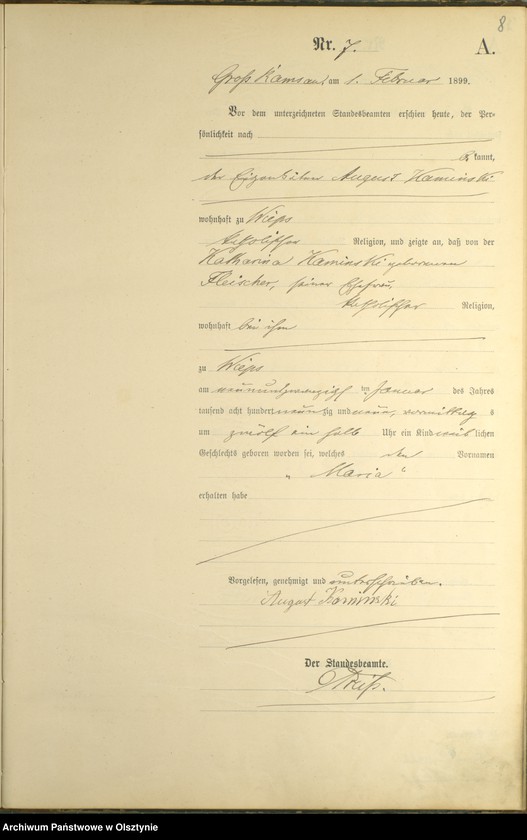 8
Nr. 7. A.
Groß Kamsau am 1. Februar 1899.
Vor dem unterzeichneten Standesbeamten erschien heute, der Per-
sönlichkeit nach
kannt,
der Eigenkätner August Kaminski
wohnhaft zu Wieps
katholischer Religion, und zeigte an, daß von der
Katharina Kaminski geborenen
Fleischer, seiner Ehefrau,
katholischer Religion,
wohnhaft bei ihm
zu Wieps
am neunundzwanzigsten Januar des Jahres
tausend acht hundert neunzig und neun, vormittags
um zwölf ein halb Uhr ein Kind weiblichen
Geschlechts geboren worden sei, welches den Vornamen
„Maria“
erhalten habe
Vorgelesen, genehmigt und unterschrieben.
August Kaminski
Der Standesbeamte.
Archiwum Państwowe w Olsztynie